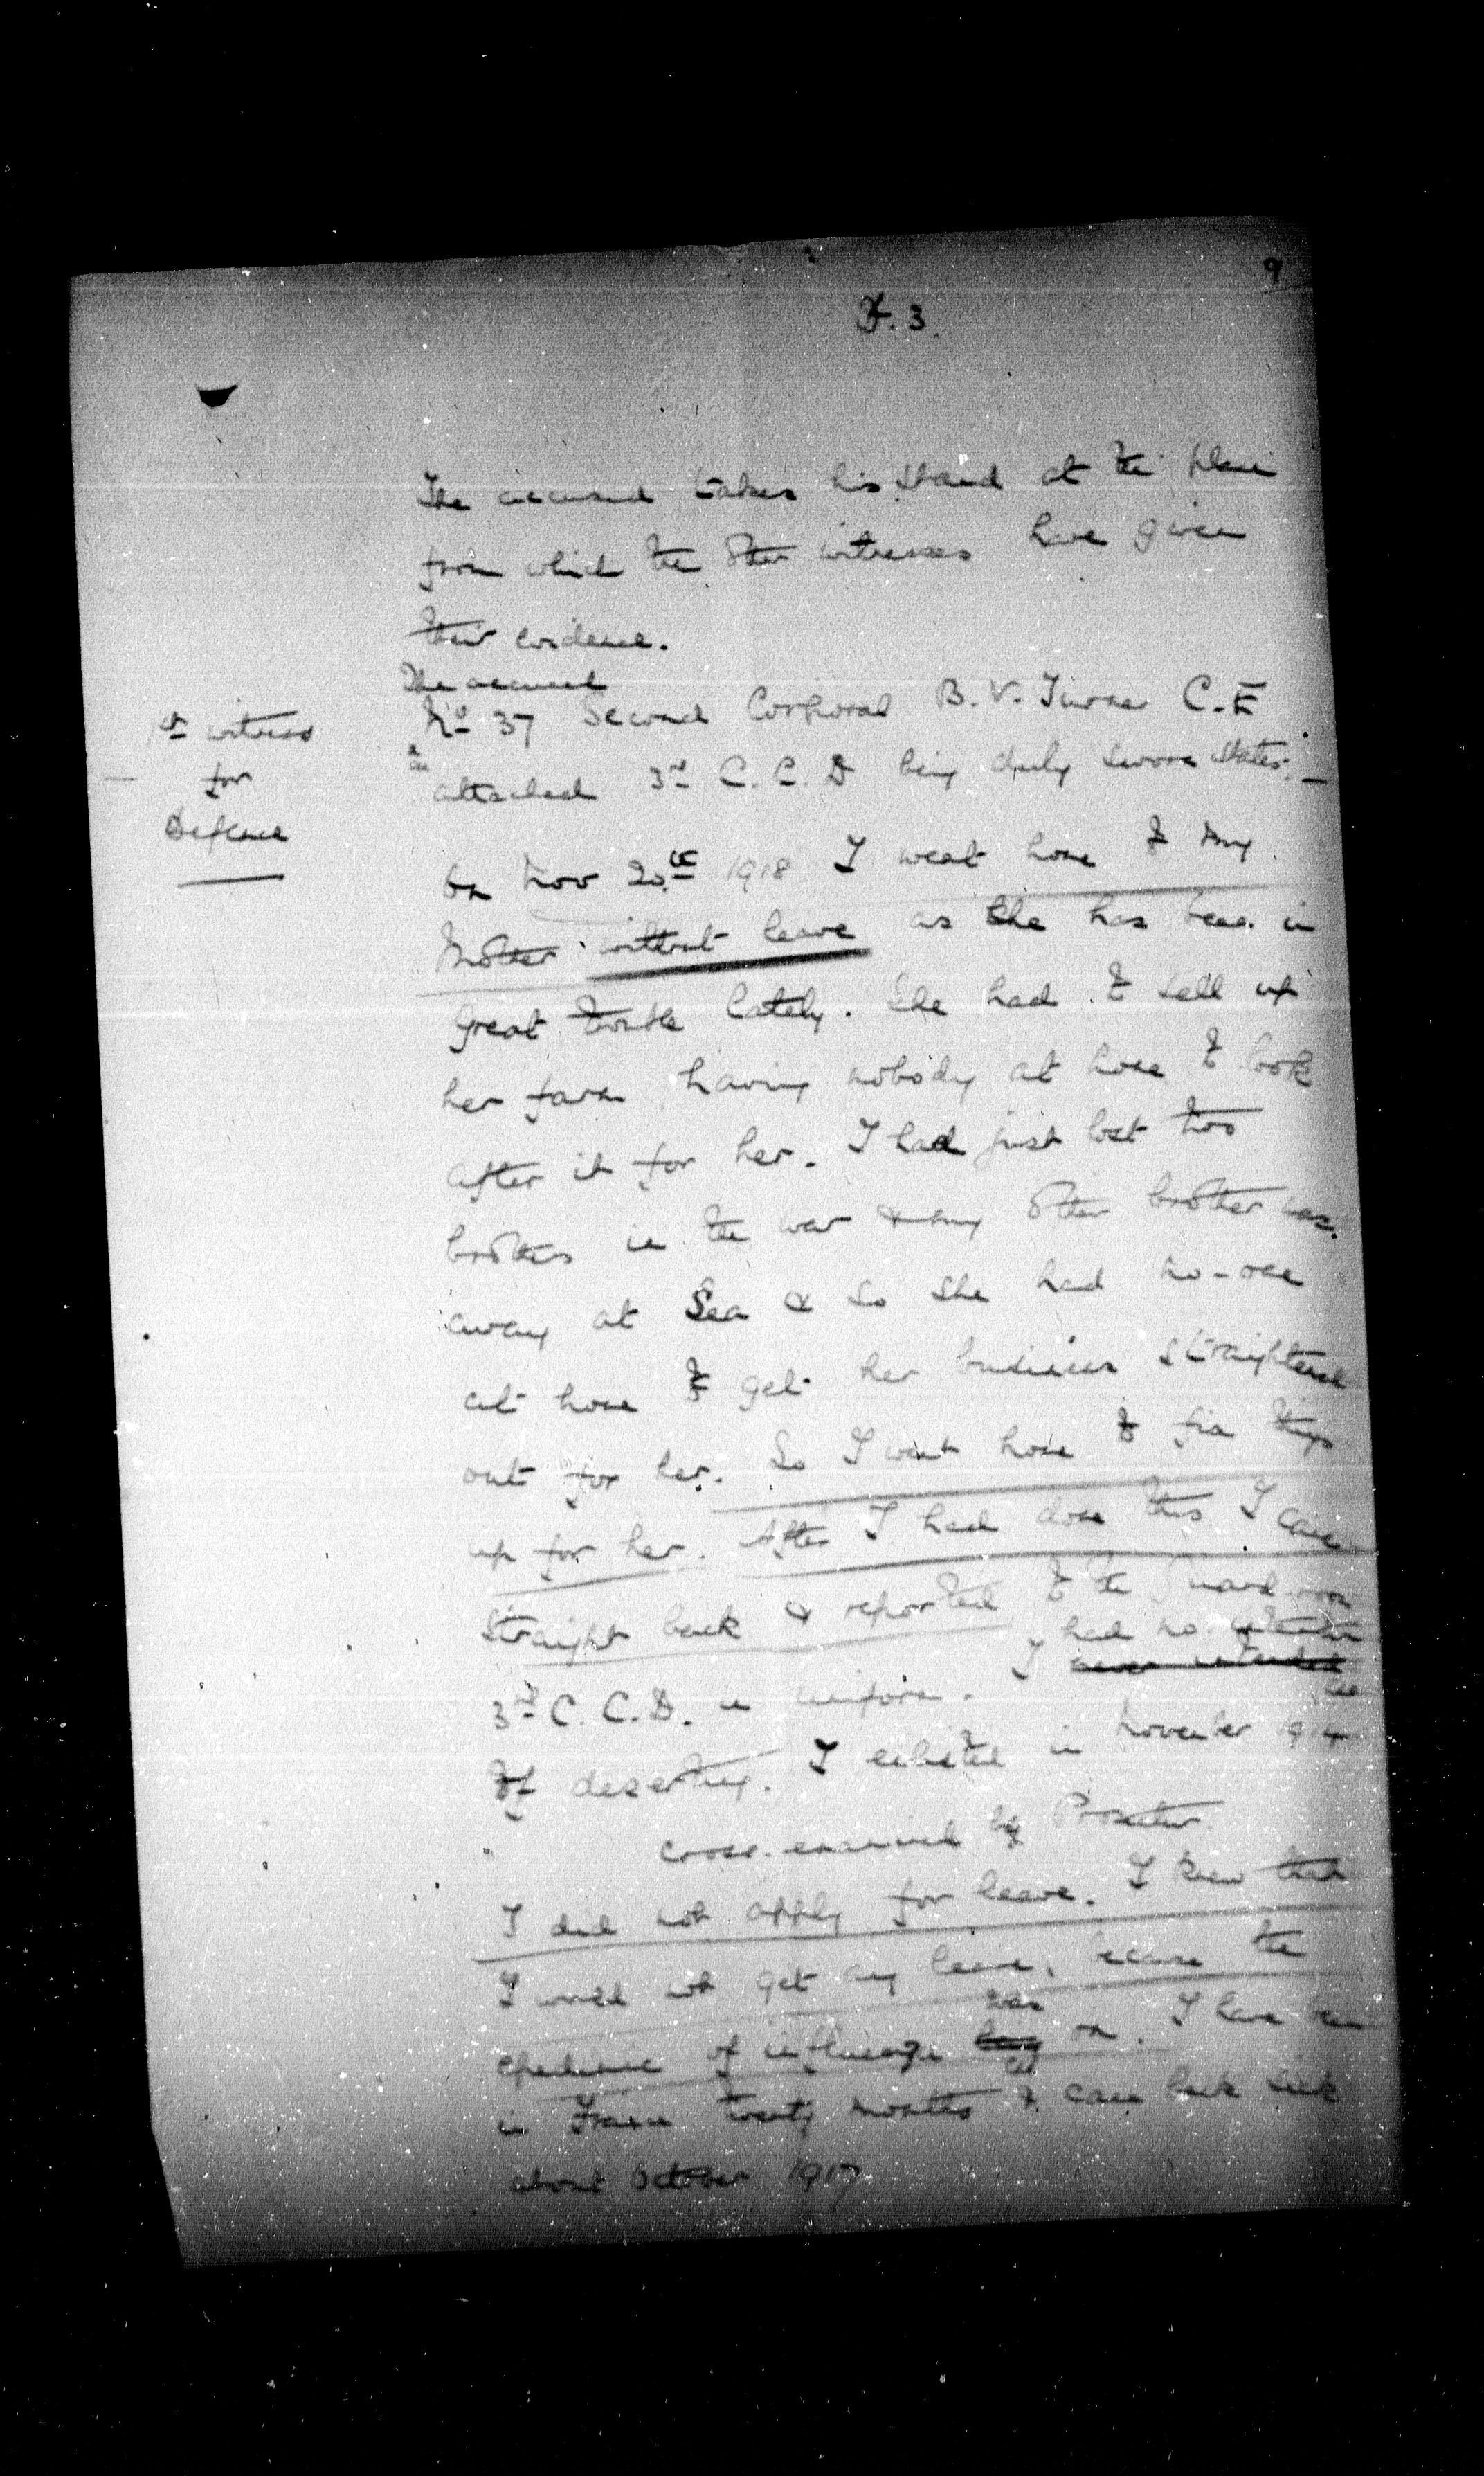 9
F. 3.
The accused takes his stand at the place
from which the other witnesses have given
their evidence.
The accused
No 37 Second Corporal B. V. Turner C.E
1st witness
for
Defence
attached 3rd C. C. D being duly sworn states:—
On Nov 20th 1918 I went home to my
Mother without leave as she has been in
great trouble lately. She had to sell up
her farm having nobody at home to look
after it for her. I had just lost two
brothers in the war & my other brother was
away at Sea & so she had no-one
at home to get her business straightened
out for her. So I went home to fix things
up for her. After I had done this I came
straight back & reported to the Guard room
3rd C. C. D. in uniform. I had no intention
never intended
of deserting. I enlisted in November 1914
Cross-examined by Prosecutor.
I did not apply for leave. I knew that
I would not get any leave, because the
epidemic of influenza was on. I have been
in France twenty months & came back sick
about October 1917